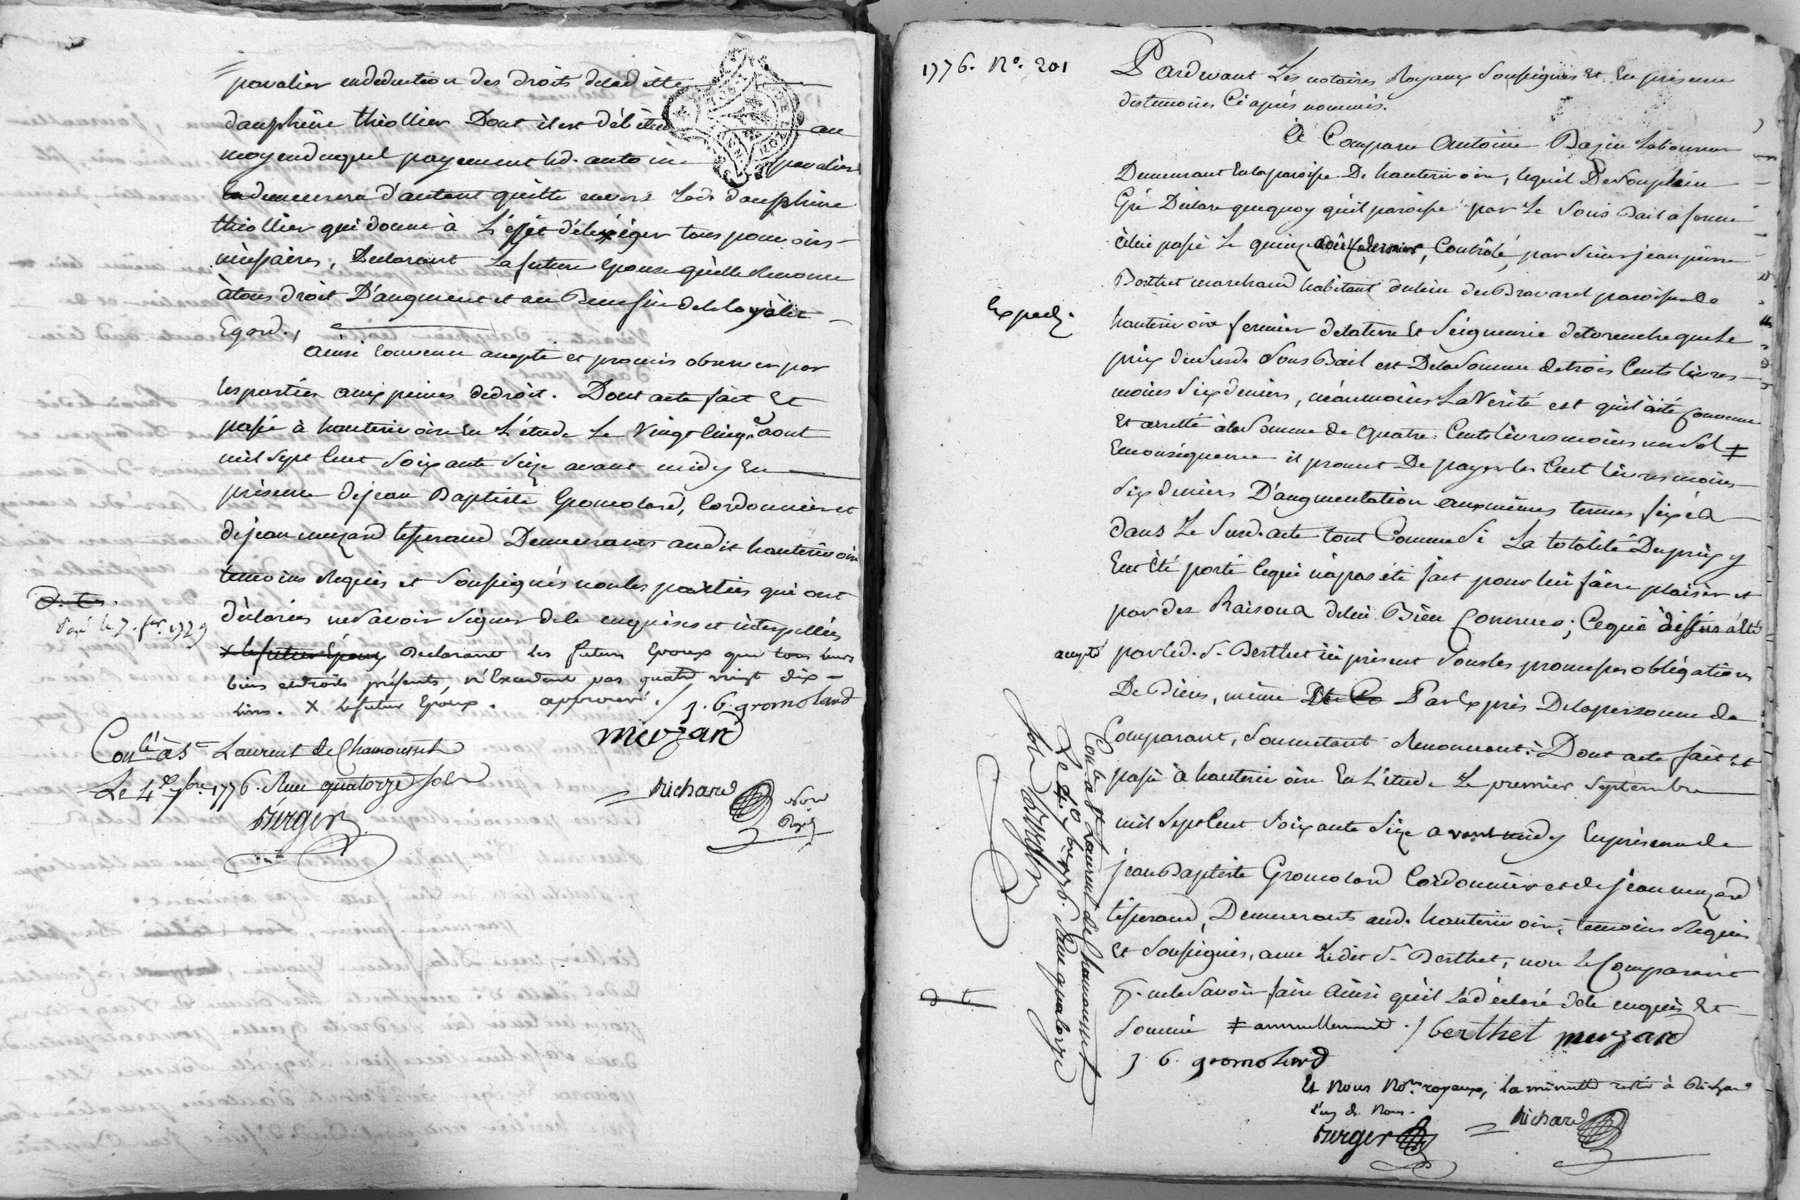 pavalier en deduction des droits de lad itte
dauphine thiollier Dont il est débiteur au
moyen duquel payement led. antoine pavalier
demeurera d'autant quitte envers Lad. dauphine
thiollier qui donne à L'effet d'éléxiger tous pouvoirs
nécéssaires, Declarant La future Epouse qu'elle Renonce
à tous droit D'augment et au Benefice de la loy à cet
Egard.
ainsi Convenu accepté et promis observer par
les parties aux peines de droit. Dont acte fait Et
passé à hauterivoire En L'étude Le Vingt Cinq aout
mil sept Cent Soixante Seize avant midy En
présence de jean Baptiste Gromolard, Cordonnier et
de jean muzard tisserand Demeurants audit hauterivoire
témoins Requis et Soussignés non les parties qui ont
déclarées ne Savoir Signer de ce enquises et interpellées
x le futur Epoux Declarant les futurs Epoux que tous leurs
biens et droits présents, n'Excedent pas quatre vingt dix
livres. X le futur Epoux. approuvé. / J. B. gromolard
muzard
payé le 7. fer. 1779
Con.lé à St Laurent de Chamousset
Le 4e 7bre 1776. Reçu quatorze sols
Berger
Richard
Nore
Royal
1776. No. 201
Pardevant Les notaires Royaux Soussignés Et En présence
des temoins Cé après nommés.
A Comparu Antoine Bazin Laboureur
Demeurant En la paroisse De hauterivoire, lequel De Son plein
Gré Déclare que quoy qu'il paroisse par Le Sous Bail a ferme
à lui passé Le quinze aoust dernier, Contrôlé, par Sieur jean pierre
Berthet marchand habitant du lieu du Bravard paroisse de
Exped.
hauterivoire fermier de la terre Et Seigneurie de torenche que Le
prix du Susd. Sous Bail est De la Somme de trois Cents livres
moins Six deniers, néanmoins La Verité est qu'il a été Convenu
Et arretté à la Somme de quatre Cents livres moins un Sol ‡
En conséquence il promet De payer les Cent livres moins
Six deniers D'augmentation aux mêmes termes fixés
dans Le Susd. acte tout Comme Si La totalité Du prix y
Eut Eté porté Ce qui n'a pas été fait pour lui faire plaisir et
par des Raisons de lui Bien Connues; Ce que dessus a Eté
accepté par led. Sr. Berthet ici présent Sous les promesses obligations
De Biens, même Par Exprès De la personne du
Comparant, Soumettant Renonceant: Dont acte fait et
passé à hauterivoire En L'étude Le premier Septembre
mil Sept Cent Soixante Seize avant midy En présence de
jean Baptiste Gromolard Cordonnier et de jean muzard
tisserand, Demeurants aud. hauterivoire, temoins Requis
Et Soussignés, avec Ledit Sr. Berthet, non le Comparant
p. ne le Savoir faire Ainsi qu'il La déclaré de ce enquis Et
Sommé ‡ annuellement. / berthet muzard
J. B. gromolard
Et Nous Nores royaux, la minutte restée à Richard
l'un de Nous.
Berger Richard
Con.lé à St Laurent de Chamousset
Le 4e 7bre 1776. Reçu quatorze
sols Berger